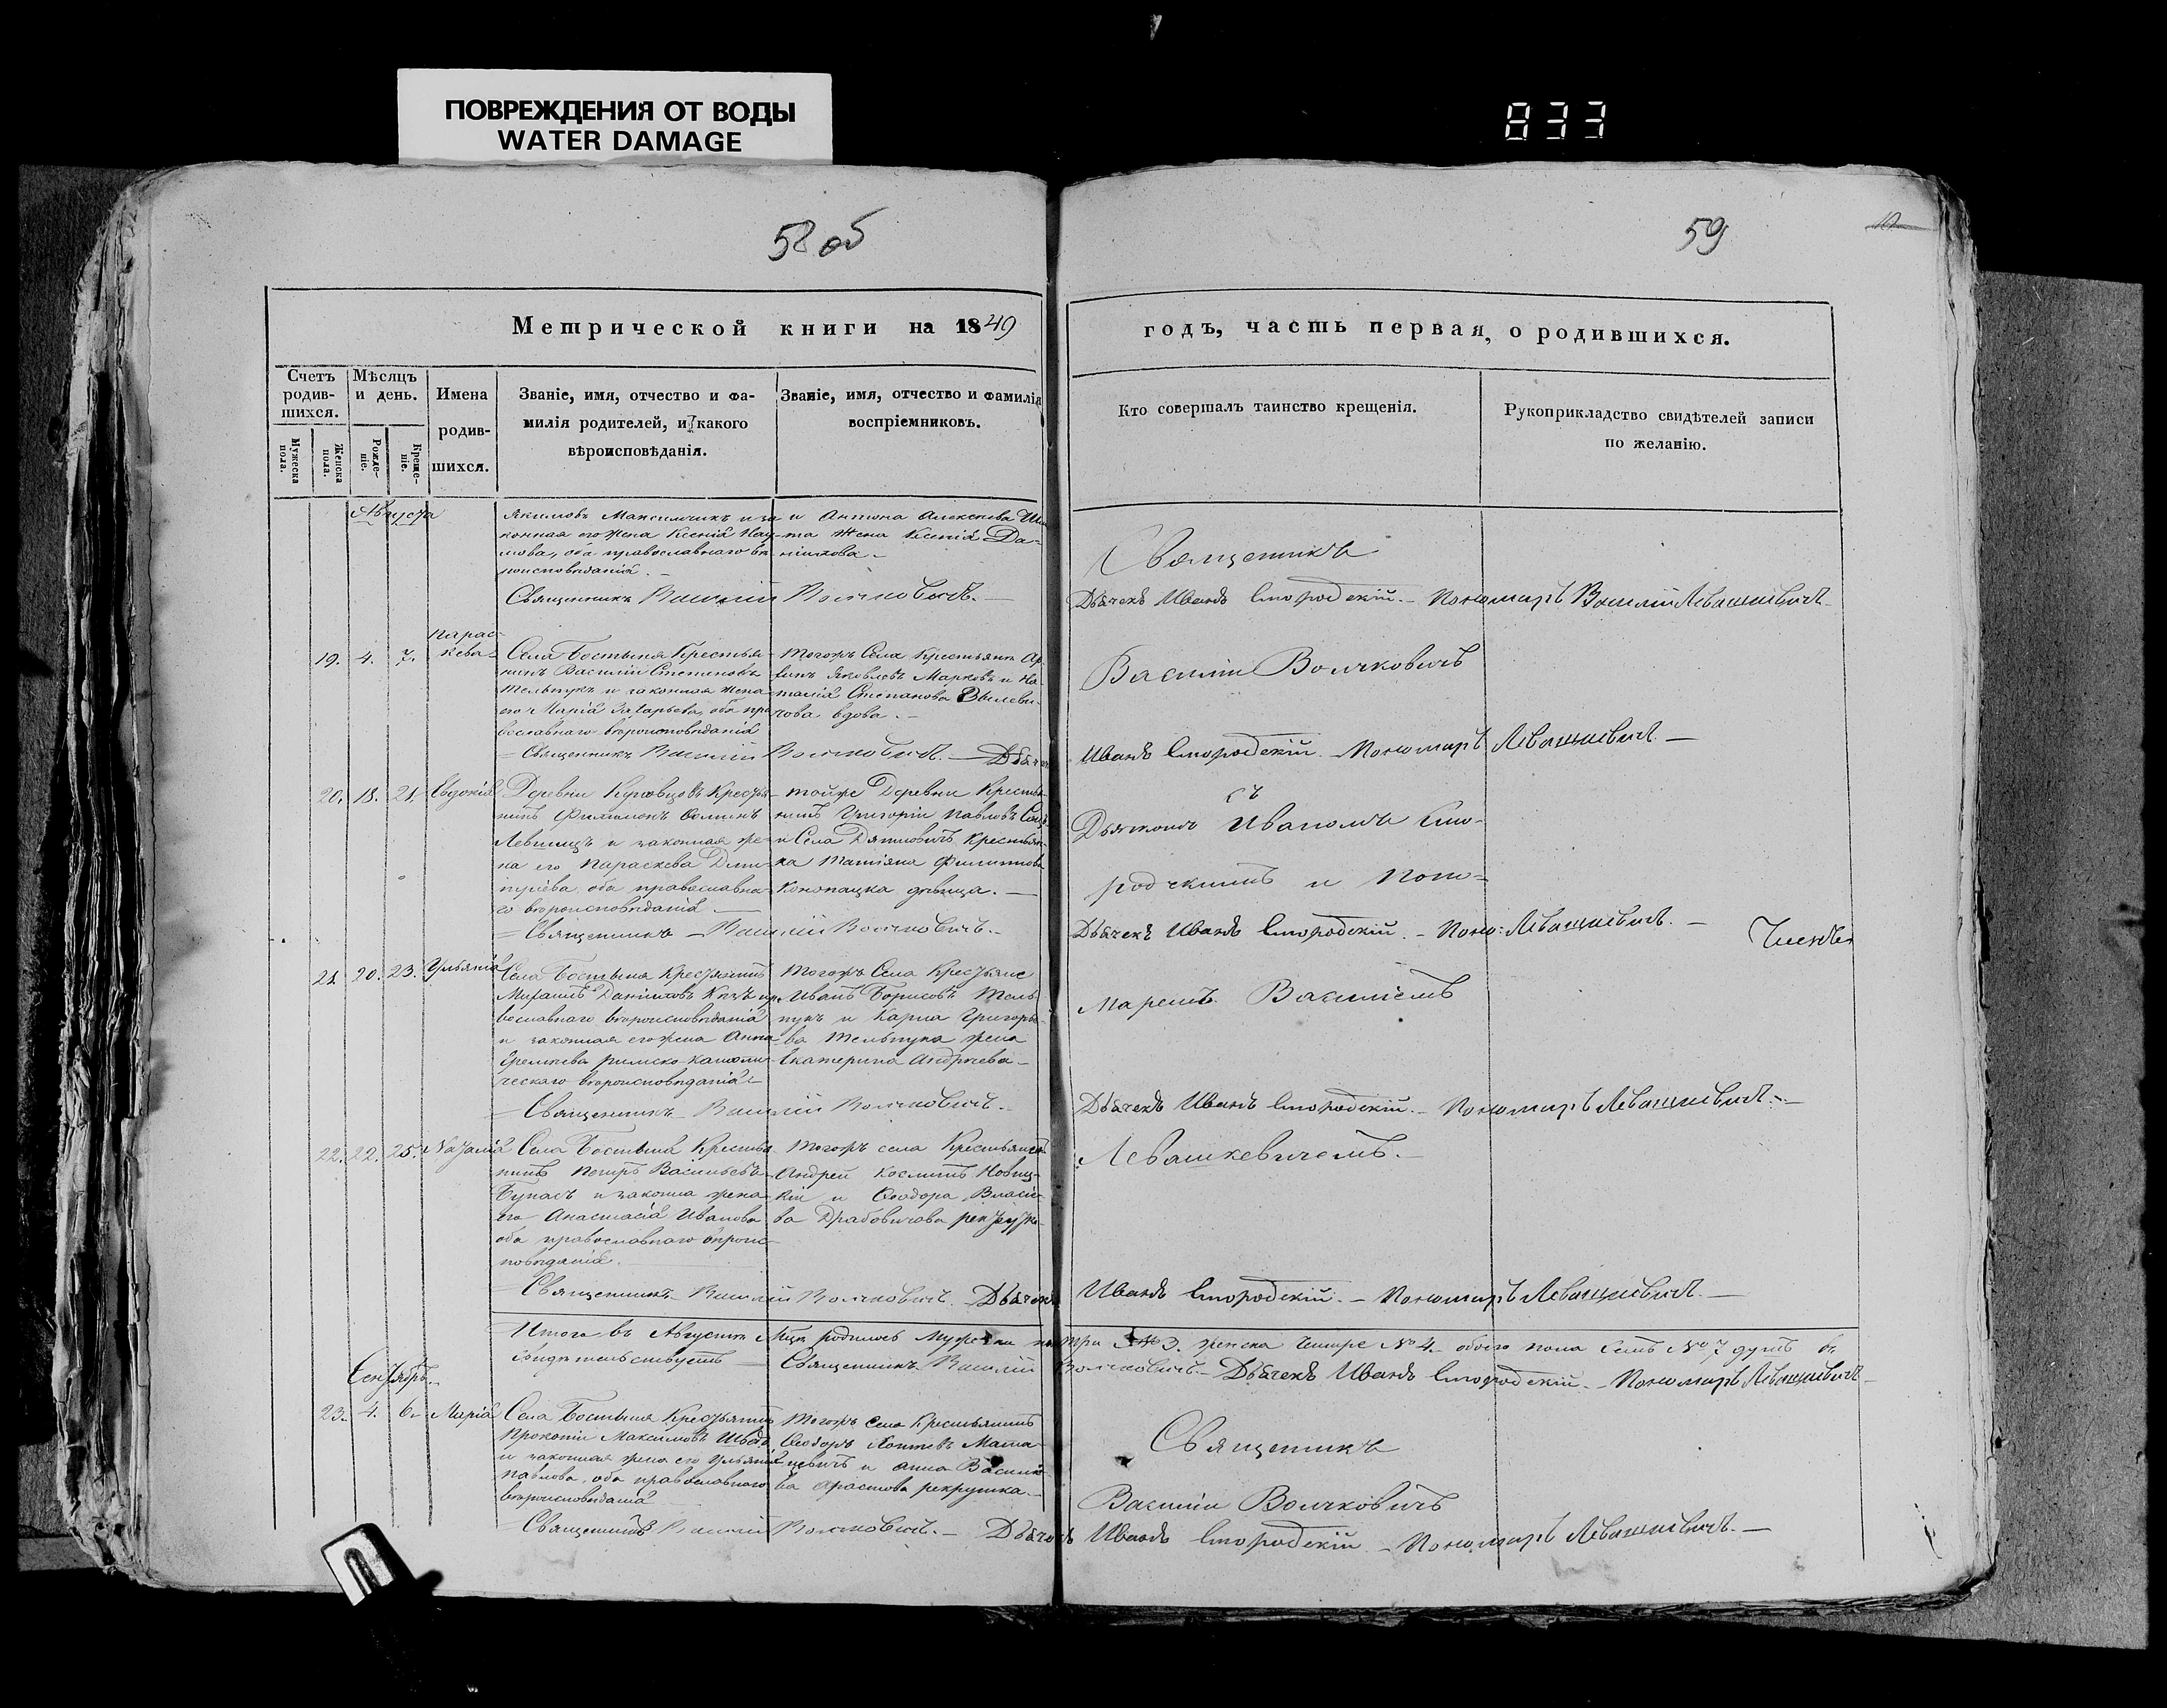 ПОВРЕЖДЕНИЯ ОТ ВОДЫ
WATER DAMAGE
833
58 об
59
Метрической книги на 1849
годъ, часть первая, о родившихся.
Счетъ родив-шихся.
Мѣсяцъ и день.
Имена родив-шихся.
Званіе, имя, отчество и фа-
милія родителей, и какого
вѣроисповѣданія.
Званіе, имя, отчество и фамилія
воспріемниковъ.
Кто совершалъ таинство крещенія.
Рукоприкладство свидѣтелей записи
по желанію.
Мужеска пола.
Женска пола.
Рожде-ніе.
Креще-ніе.
Августа
Якимовъ Максимчикъ и за
конная его жена Ксенія Нау
мова, оба православнаго вѣ
роисповѣданія.
и Антона Алексѣева
та жена Ксенія Да-
нилова.
Священникъ Василій Волчковичъ.
Священникъ
Дьячекъ Иванъ Сто родскій. Пономарь Василій Левашкевичъ
19. 4. 7. Парас-
кева
Села Бостыня Крестья-
нинъ Василій Степановъ
Тельпукъ и законная жена
его Марія Захарьева, оба пра
вославнаго вѣроисповѣданія
Тогожъ Села Крестьянинъ
Яковлевъ Марковъ и На
талія Степанова
чова вдова.
Священникъ Василій Волчковичъ. Дьячекъ
Василій Волчковичъ
Иванъ Стородскій Пономарь Левашкевичъ
20. 18. 21. Евдокія
Деревни Крестья-
нинъ Филимонъ Ѳоминъ
и законная же-
на его Параскева Дми-
тріева оба православна-
го вѣроисповѣданія
тойже Деревни Крестья
нинъ Григорій Павловъ
и Села Дятловичъ Крестьян-
ка Татіяна Филиппова
Конопацка дѣвица.
Священникъ Василій Волчковичъ.
съ
Дьячкомъ Иваномъ Сто-
родскимъ и Поно-
Дьячекъ Иванъ Стородскій. Поно: Левашкевичъ.
21. 20. 23. Ульянія
Села Бостыня Крестьянинъ
Михаилъ Даниловъ пра
вославнаго вѣроисповѣданія
и законная его жена Анна
римско-католи-
ческаго вѣроисповѣданія
Тогожъ Села Крестьяне
Иванъ Борисовъ Тель
пукъ и Карпа Григорье-
ва Тельпука жена
Екатерина Андреева
Священникъ Василій Волчковичъ.
маремъ Василіемъ
Дьячекъ Иванъ Стородскій. Пономарь Левашкевичъ.
22. 22. 25. Наталія
Села Бостыня Крестья
нинъ Петръ Васильевъ
Бунасъ и законна жена
его Анастасія Иванова
оба православнаго вѣроис-
повѣданія.
Тогожъ села Крестьянинъ
Андрей Косминъ Новиц-
кій и Ѳеодора Власіе-
ва Драбовичова рекрутка
Священникъ Василій Волчковичъ. Дьячекъ
Левашкевичемъ.
Иванъ Стородскій. Пономарь Левашкевичъ.
Итого въ Августѣ Мцѣ родилось Мужеска пола три №3. женска Четыре №4. обоего пола Семь №7 душъ
свидѣтельствуетъ Священникъ Василій Волчковичъ. Дьячекъ Иванъ Стородскій. Пономарь Левашкевичъ
Сентябрь
23. 4. 6. Марія
Села Бостыня Крестьянинъ
Прокопій Максимовъ
и законная жена его Ульянія
Павлова, оба православнаго
вѣроисповѣданія
Тогожъ Села Крестьянинъ
Ѳеодоръ
и Анна Василіе-
ва рекрутка.
Священникъ Василій Волчковичъ. Дьячекъ
Священникъ
Василій Волчковичъ
Иванъ Стородскій Пономарь Левашкевичъ.